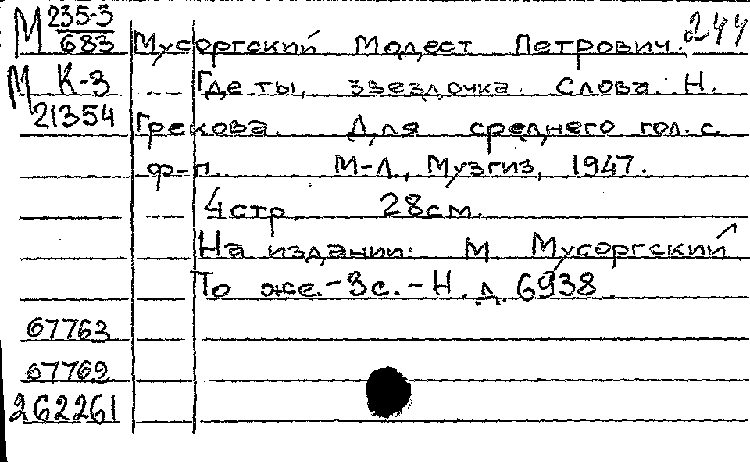 М 235-3 244
683 Мусоргский Модест Петрович.
М К-3 Где ты, звездочка. Слова. Н.
21354 Грекова. Для среднего гол. с
ф-п. М-Л., Музгиз, 1947.
4 стр. 28 см.
На издании: М Мусоргский
То же. - 3 с. - Н. д. 6938.
67763
67769
262261